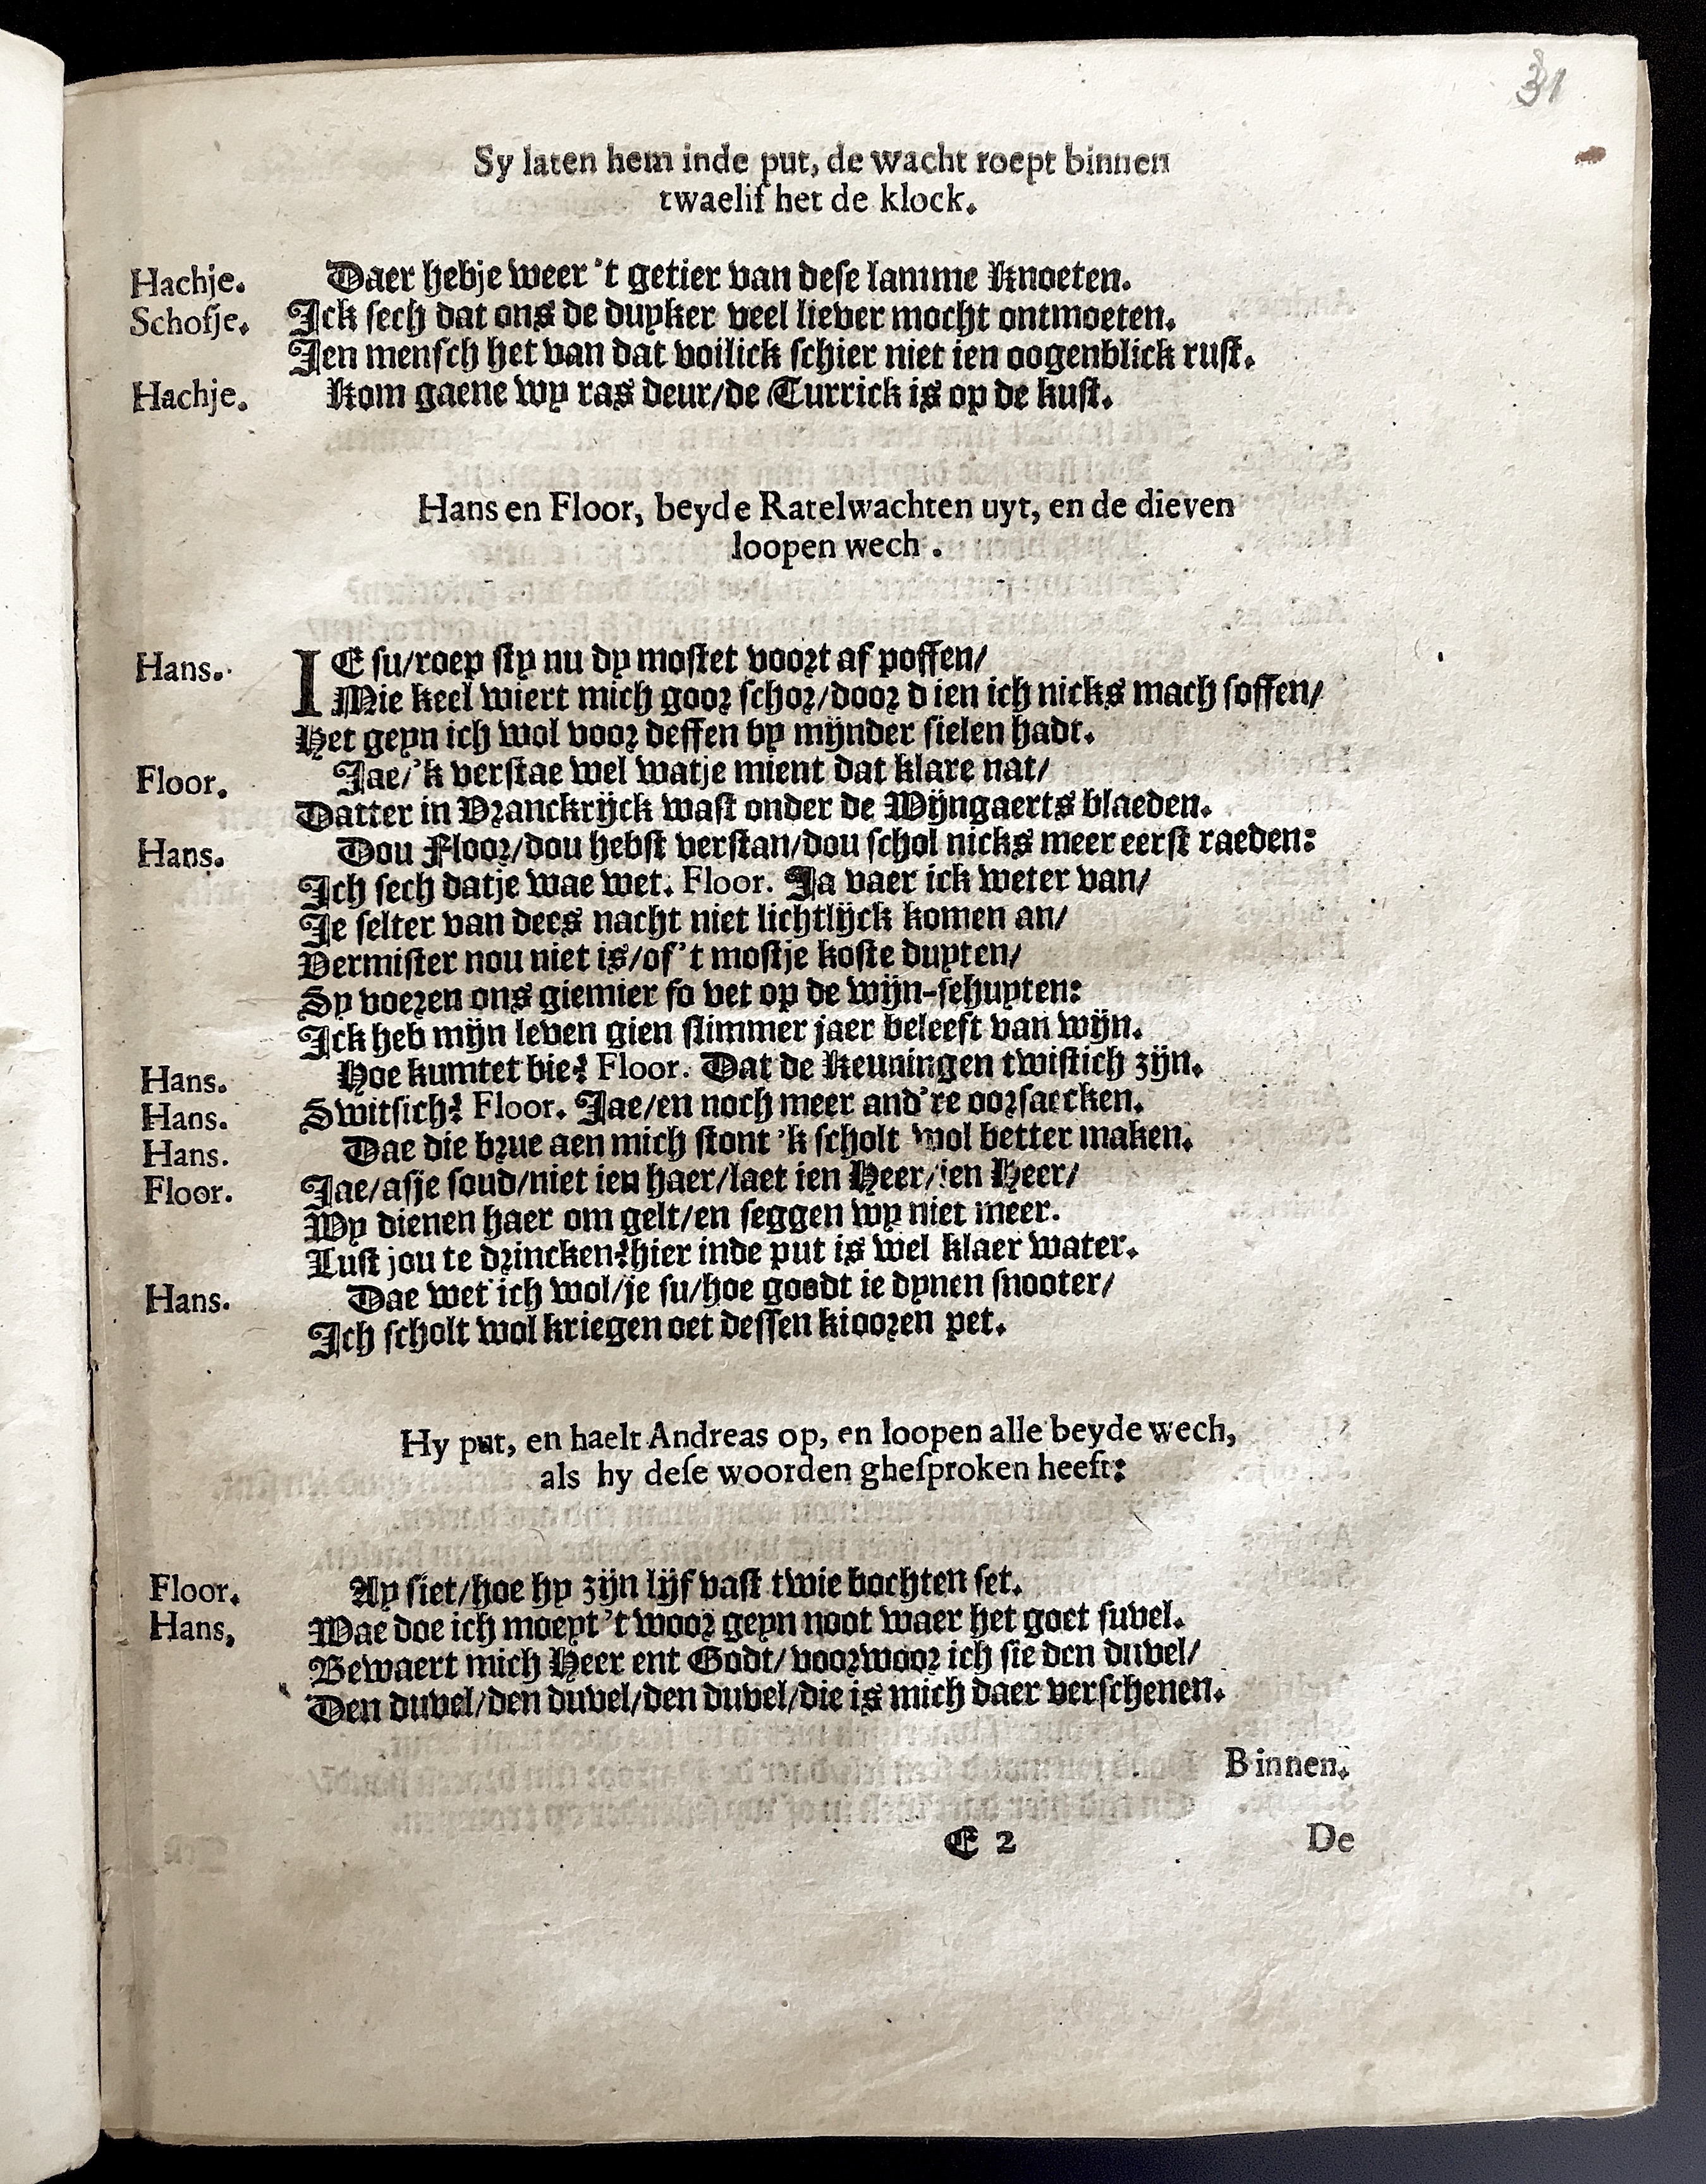 31
Sy laten hem inde put, de wacht roept binnen
twaelif het de klock.
Hachje. Daer hebje weer 't getier van dese lamme Knoeten.
Schofje. Ick sech dat ons de duyker veel liever mocht ontmoeten.
Jen mensch het van dat voilick schier niet ien oogenblick rust.
Hachje. Kom gaene wy ras deur/de Turrick is op de kust.
Hans en Floor, beyde Ratelwachten uyt, en de dieven
loopen wech.
Hans. IE su/roep sty nu dy mostet voort af poffen/
Mie keel wiert mich goor schor/door d ien ich nicks mach soffen/
Het geyn ich wol voor deffen by mijnder sielen hadt.
Floor. Jae/'k verstae wel watje mient dat klare nat/
Datter in Vranckrijck wast onder de Wijngaerts blaeden.
Hans. Dou Floor/dou hebst verstan/dou schol nicks meer eerst raeden:
Ich sech datje wae wet. Floor. Ja vaer ick weter van/
Je selter van dees nacht niet lichtlijck komen an/
Vermister nou niet is/of 't mostje koste duyten/
Sy voeren ons giemier so vet op de wijn-schuyten:
Ick heb mijn leven gien slimmer jaer beleeft van wijn.
Hans. Hoe kumtet bie? Floor. Dat de Keuningen twistich zijn.
Hans. Switsich? Floor. Jae/en noch meer and're oorsaecken.
Hans. Dae die brue aen mich stont 'k scholt wol better maken.
Floor. Jae/asje soud/niet ien haer/laet ien Heer/ien Heer/
Wy dienen haer om gelt/en seggen wy niet meer.
Lust jou te drincken?hier inde put is wel klaer water.
Hans. Dae wet ich wol/je su/hoe goedt ie dynen snooter/
Ich scholt wol kriegen oet dessen kiooren pet.
Hy put, en haelt Andreas op, en loopen alle beyde wech,
als hy dese woorden ghesproken heeft:
Floor. Ay siet/hoe hy zijn lijf vast twie bochten set.
Hans, Wae doe ich moeyt 't woor geyn noot waer het goet suvel.
Bewaert mich Heer ent Godt/voorwoor ich sie den duvel/
Den duvel/den duvel/den duvel/die is mich daer verschenen.
Binnen.
E 2 De